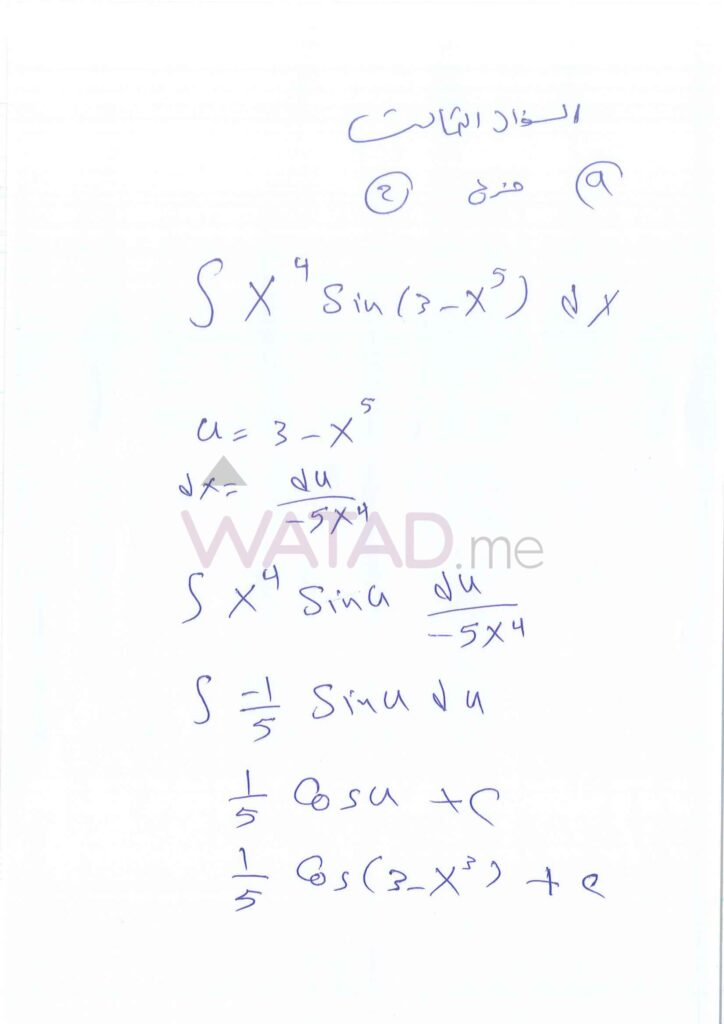 السؤال الثالث
a فرع 2
∫ x⁴ Sin(3-x⁵) dx
u = 3 - x⁵
dx = du/-5x⁴
WATAD.me
∫ x⁴ Sinu du/-5x⁴
∫ -1/5 Sinu du
1/5 Cosu + C
1/5 Cos(3-x³) + C